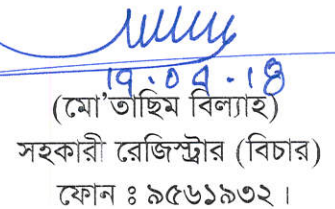 ১৭.০৭.১৪
(মো'তাছিম বিল্যাহ)
সহকারী রেজিস্ট্রার (বিচার)
ফোন ঃ ৯৫৬১৯৩২ ।